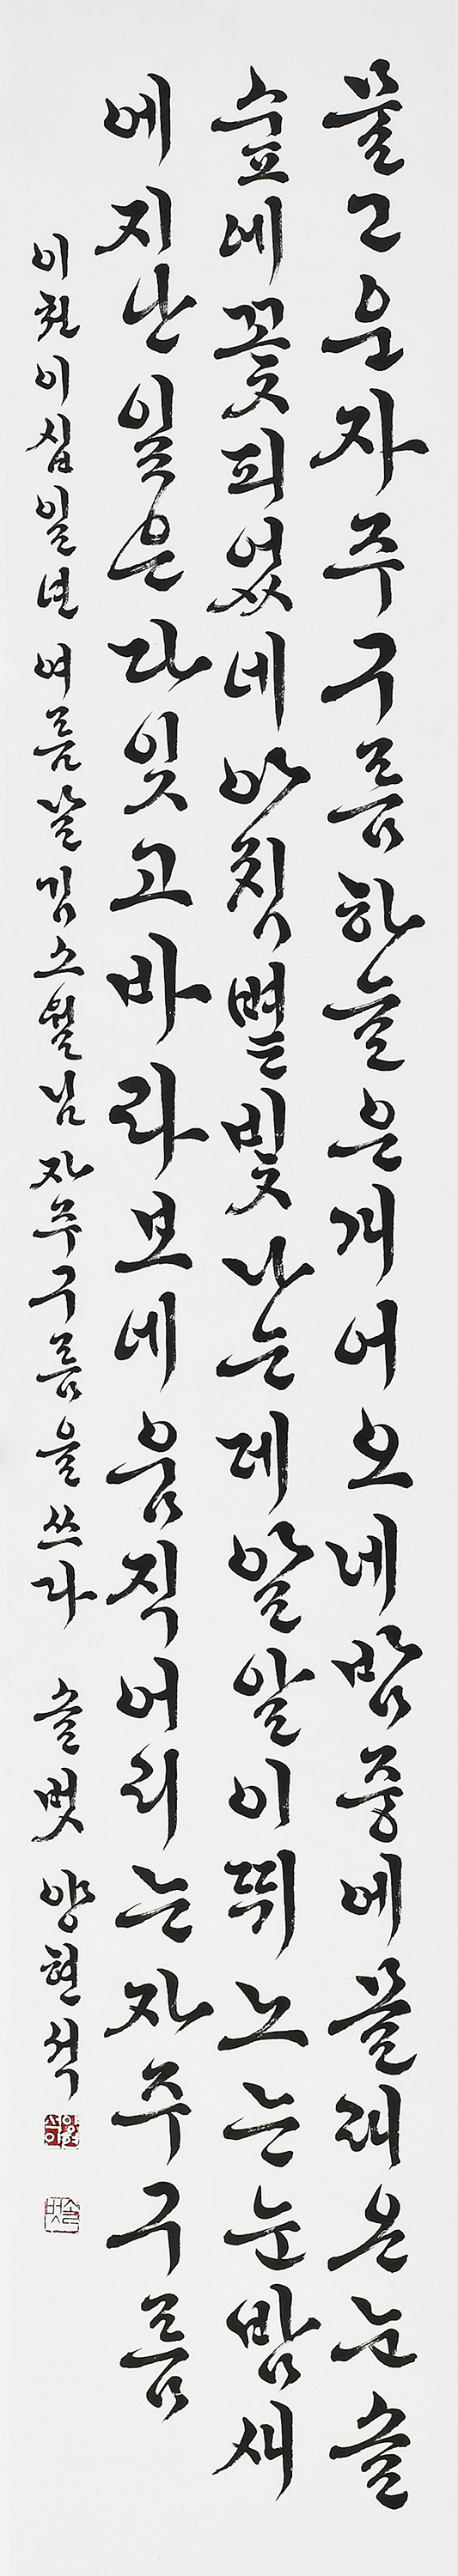 물고운자주구름하늘은개어오네밤중에몰래온눈솔
숲에꽃피었네아침볕빛나는데알알이뛰노는눈밤새
에지난일은다잊고바라보네움직어리는자주구름
이천이십일년 여름날김소월님자주구름을쓰다 솔벗 양현석
솔벗